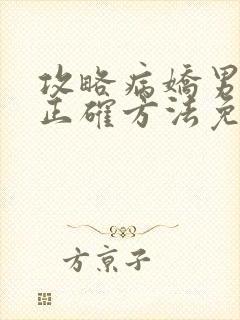 攻略病嬌男
正確方法免
方京子